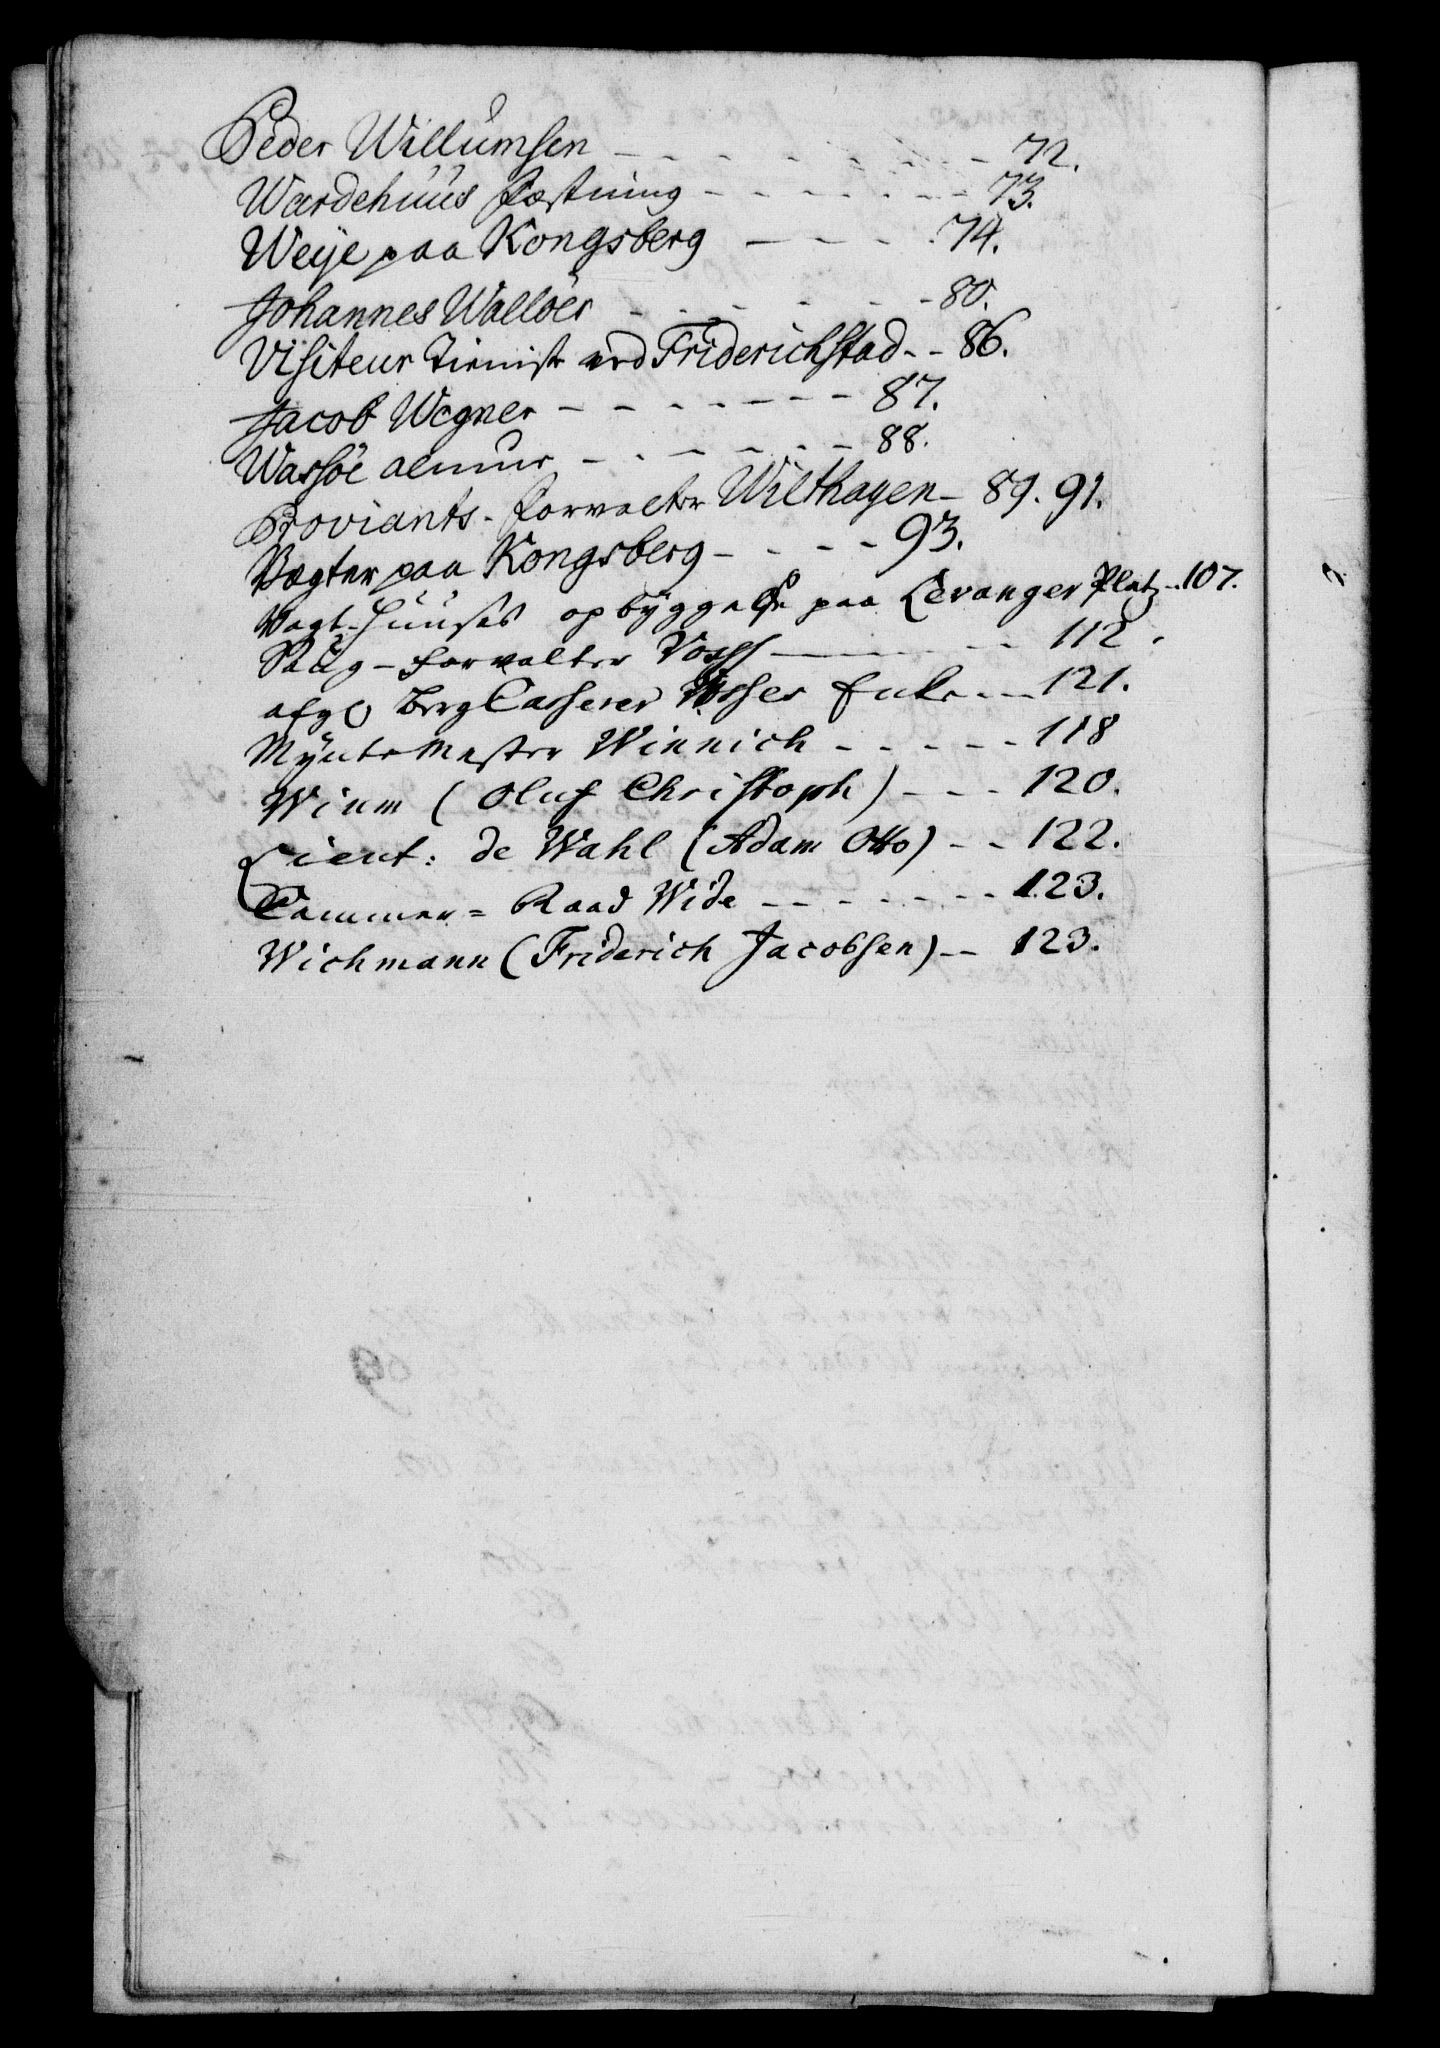 Peder Willumsen - - - - - - - - 72.
Wardehuus fæstning - - - - - - - 73.
Weye paa Kongsberg - - - - 74.
Johannes Wallöer - - - - - - - 80.
Visiteur Tieniste ved Friderichstad - - 86.
Jacob Wegner - - - - - - - - 87.
Wassöe almue - - - - - - - 88.
Proviants-forvalter Wilthagen - 89. 91.
Vegter paa Kongsberg - - - - - 93.
Vagt-Huuses opbyggelse paa Levanger Platz - . 107.
forvalter Voss - - - - 112.
afg: Berg Casserer Vosses Enke - - - 121.
Myntemester Winnich - - - - - 118
Winm (Oluf Christoph) - - - 120.
Lieut: de Wahl (Adam Otto) - - 122.
Cammer=Raad Wide - - - - - - - 123.
Wichmann (Friderich Jacobsen) - - 123.